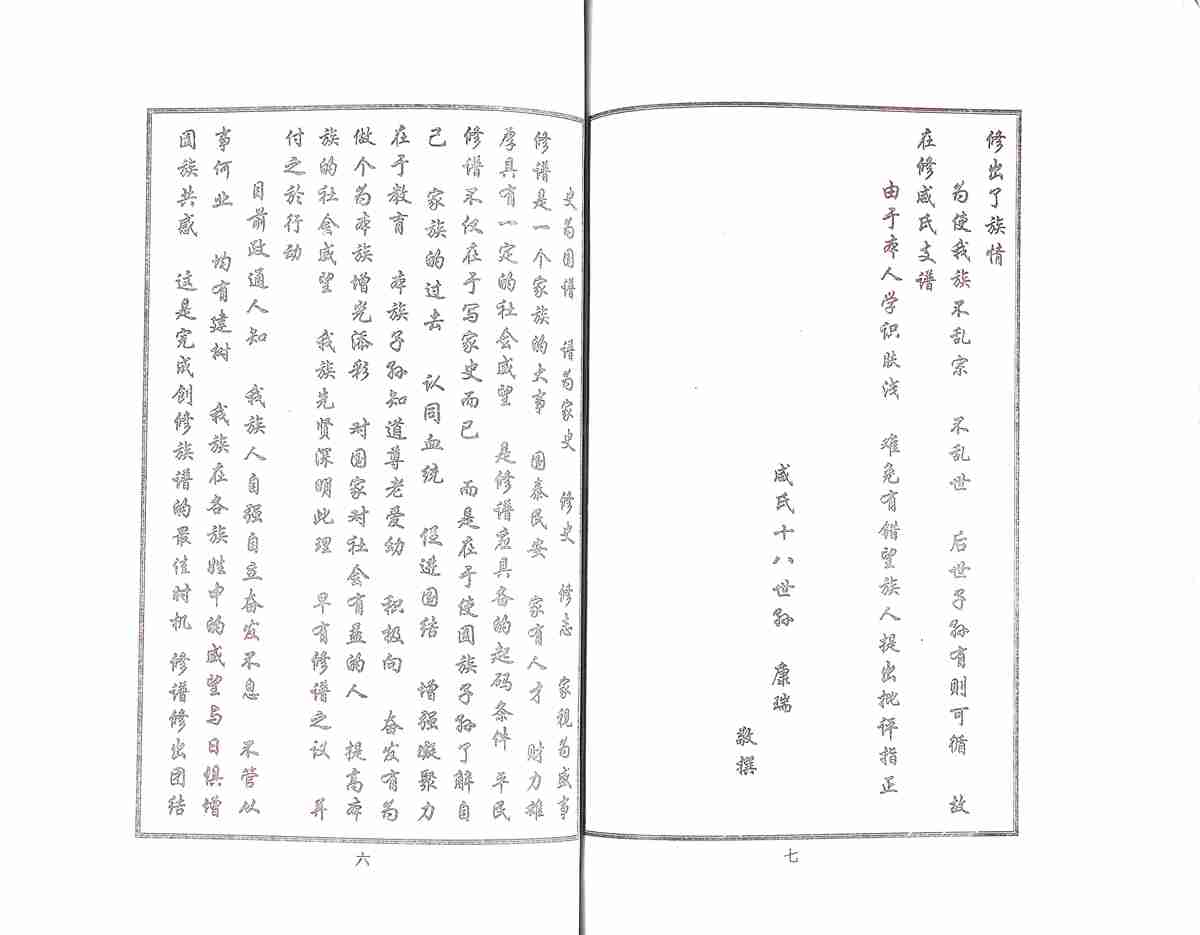 史为国情 谱为家史 修史 修志 家视为盛事
修谱是一个家族的大事 国泰民安 家有人才 财力雄
厚具有一定的社会威望 是修谱应具备的起码条件 平民
修谱不仅在于写家史而已 而是在于使圆族子孙了解自
己 家族的过去 认同血统 促进团结 增强凝聚力
在于教育 本族子孙知道尊老爱幼 积极向 奋发有为
做个为本族增光添彩 对国家对社会有益的人 提高本
族的社会威望 我族先贤深明此理 早有修谱之议 并
付之於行动
目前政通人知 我族人自强自立奋发不息 不管从
事何业 均有建树 我族在各族姓中的威望与日俱增
圆族共感 这是完成创修族谱的最佳时机 修谱修出团结
六
修出了族情
为使我族不乱宗 不乱世 后世子孙有则可循 故
在修咸氏支谱
由于本人学识肤浅 难免有错望族人提出批评指正
咸氏十八世孙 康瑞
敬撰
七